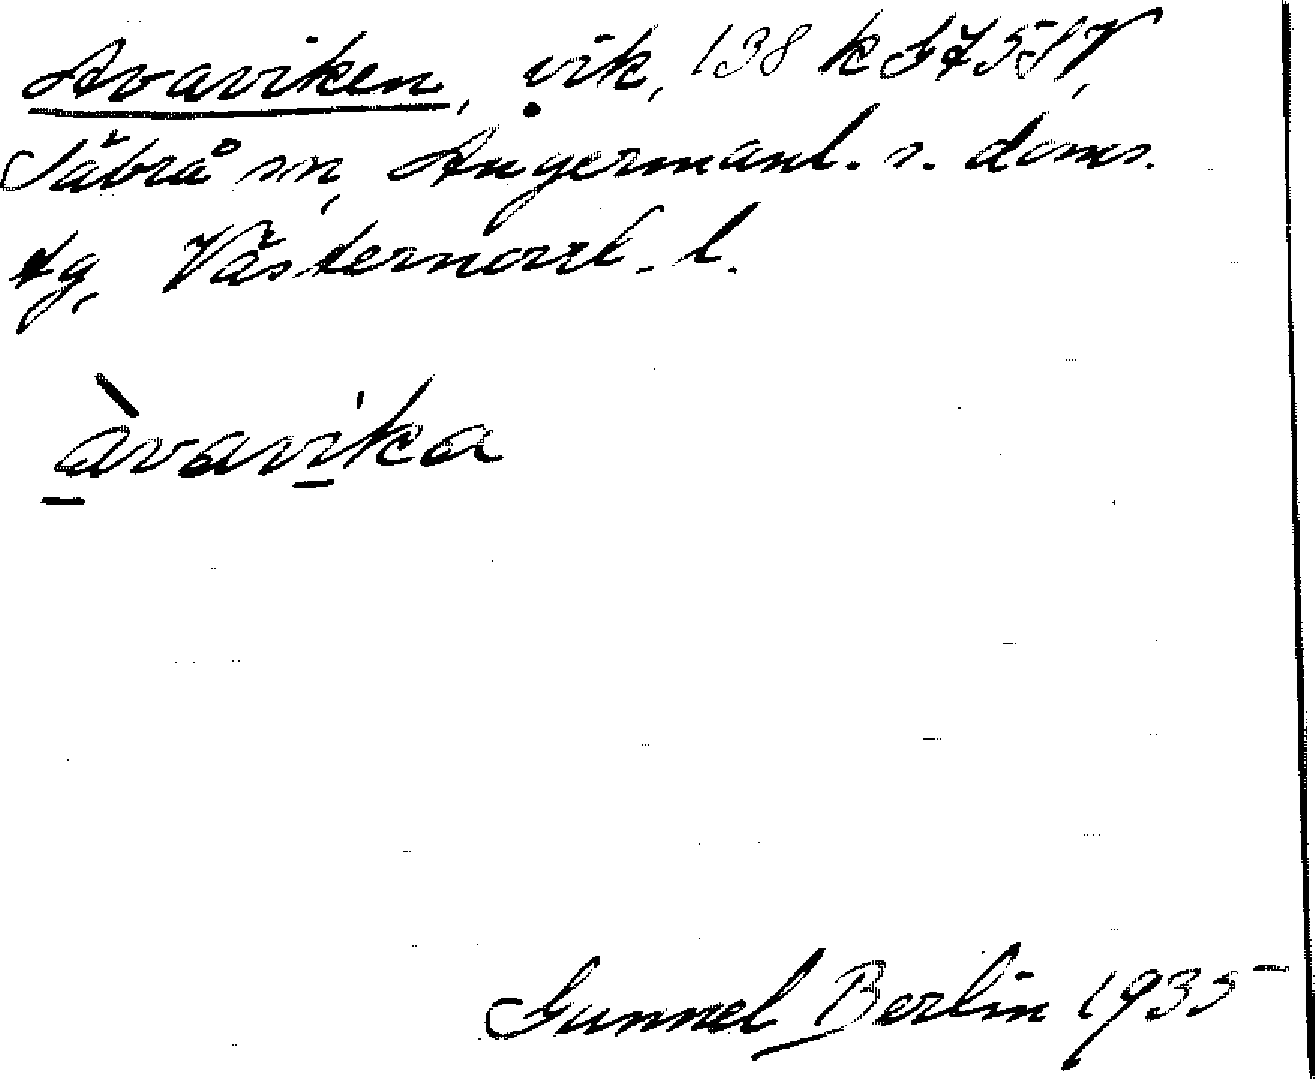 Avaviken, vik, 138 k S758V,
Säbrå sn, Ångermanl. s. doms.
tg, Västernorrl. l.
àvavika
Gunnel Berlin 1935